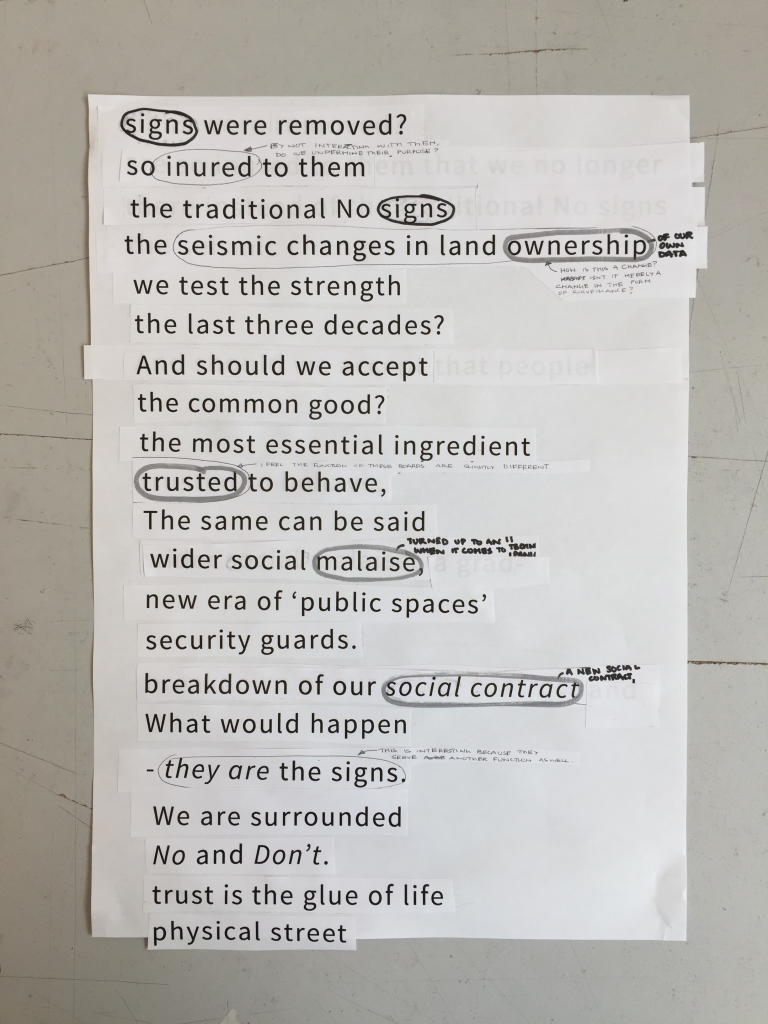 signs were removed?
BY NOT INTERACTING WITH THEM,
DO WE UNDERMINE THEIR PURPOSE?
so inured to them that we no longer
the traditional No signs
the seismic changes in land ownership
OF OUR
OWN
DATA
HOW IS THIS A CHANGE?
ISN'T IT MERELY A
CHANGE IN THE FORM
OF SURVEILLANCE?
we test the strength
the last three decades?
And should we accept that people
the common good?
the most essential ingredient
I FEEL THE FUNCTION OF THESE BOARDS ARE SLIGHTLY DIFFERENT
trusted to behave,
The same can be said
TURNED UP TO AN 11
WHEN IT COMES TO
wider social malaise, a grad-
new era of ‘public spaces’
security guards.
A NEW SOCIAL
CONTRACT,
breakdown of our social contract and
What would happen
THIS IS INTERESTING BECAUSE THEY
SERVE ANOTHER FUNCTION AS WELL.
- they are the signs.
We are surrounded
No and Don’t.
trust is the glue of life
physical street